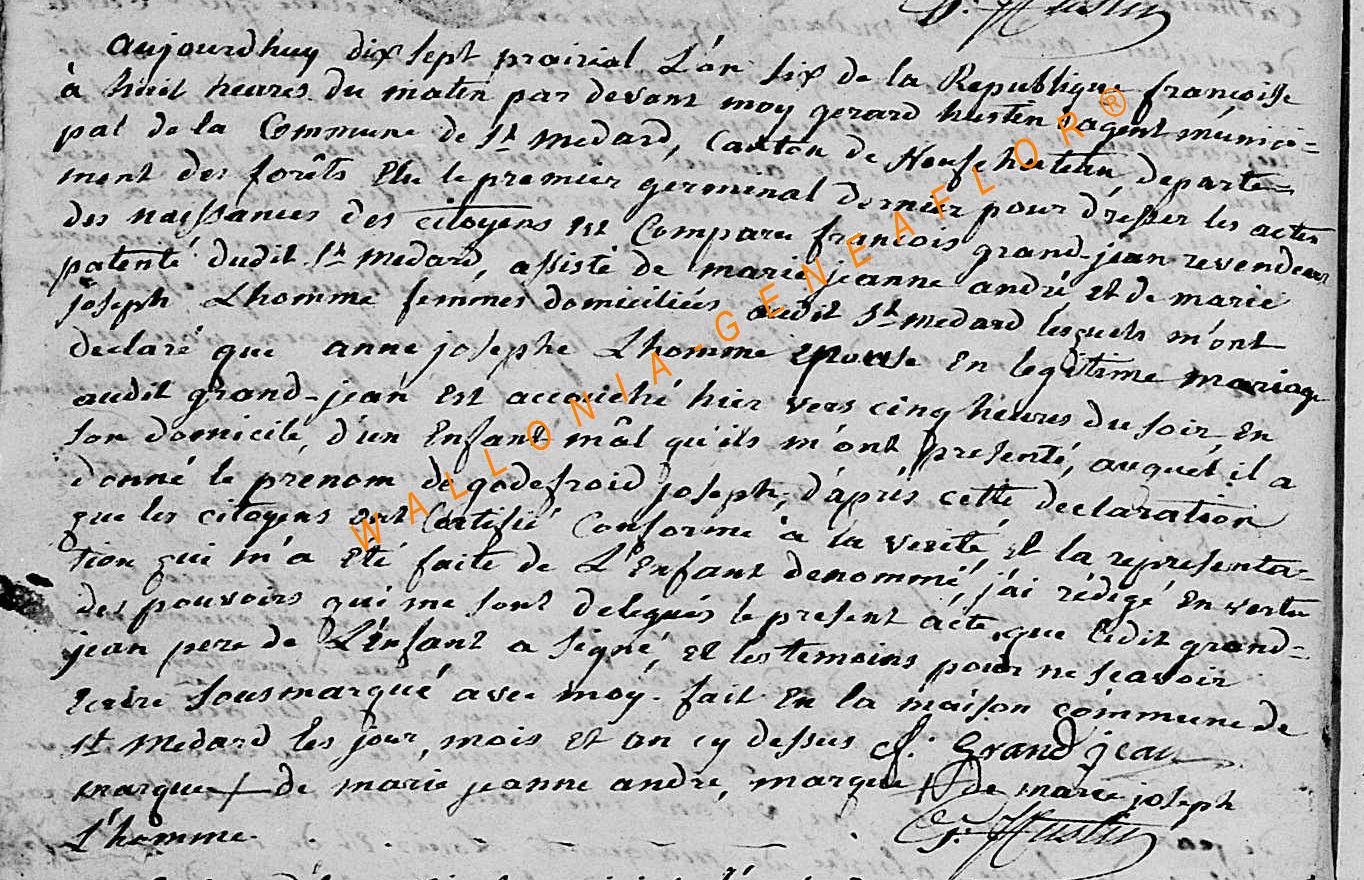 G. Hustin
aujourdhuy dix sept prairial L'an six de la Republique françoisse
à huit heures du matin par devant moy gerard hustin agent munici=
pal de la Commune de St medard, Canton de Neufchateau departe=
ment des forêts Elu le premier germinal dernier pour dresser les actes
des naissances des citoyens est Comparu francois grand-jean revendeur
patenté dudit St medard, assisté de marie jeanne andré et de marie
joseph Lhomme femmes domiciliées audit St medard lesquels m'ont
declaré que anne josephe Lhomme Epouse En legitime mariage
audit grand-jean Est accouché hier vers cinq heures du soir, En
son domicile, d'un Enfant mâl qu'ils m'ont presenté, auquel il a
donné le prénom de godefroid joseph, d'après cette declaration
que les citoyens ont Certifié Conforme à la verité, et la representa=
tion qui m'a Eté faite de L'Enfant denommé, j'ai rédigé En vertu
des pouvoirs qui me sont delegués le present acte, que ledit grand=
jean pere de L'Enfant a signé, et les temoins pour ne scavoir
Ecrire sousmarqué avec moy. fait En la maison commune de
St medard les jour, mois et an cy dessus f. Grand jean
marque + de marie jeanne andré, marque de marie joseph
L'homme. G. Hustin
WALLONIA-GENEAFLOR®